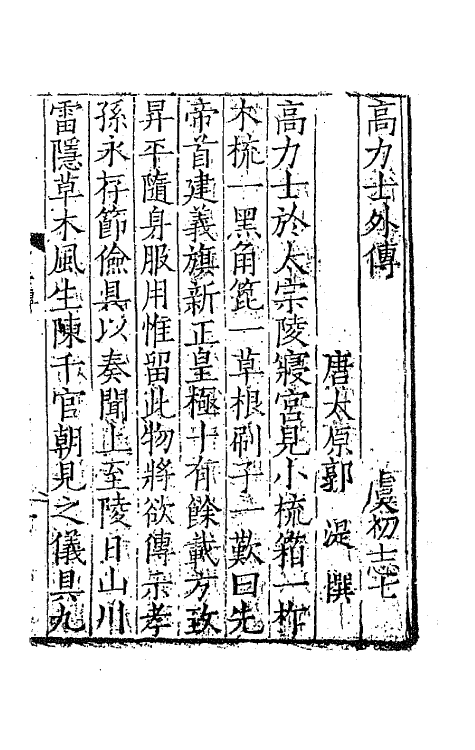 高力士外傳　虞初志七
唐太原郭湜撰
高力士於太宗陵寢宮見小梳箱一柞
木梳一黑角篦一草根刷子一歎曰先
帝首建義旗新正皇極十有餘載方致
昇平隨身服用惟留此物將欲傳示孝
孫永存節儉具以奏聞上至陵日山川
雷隱草木風生陳千官朝見之儀具九